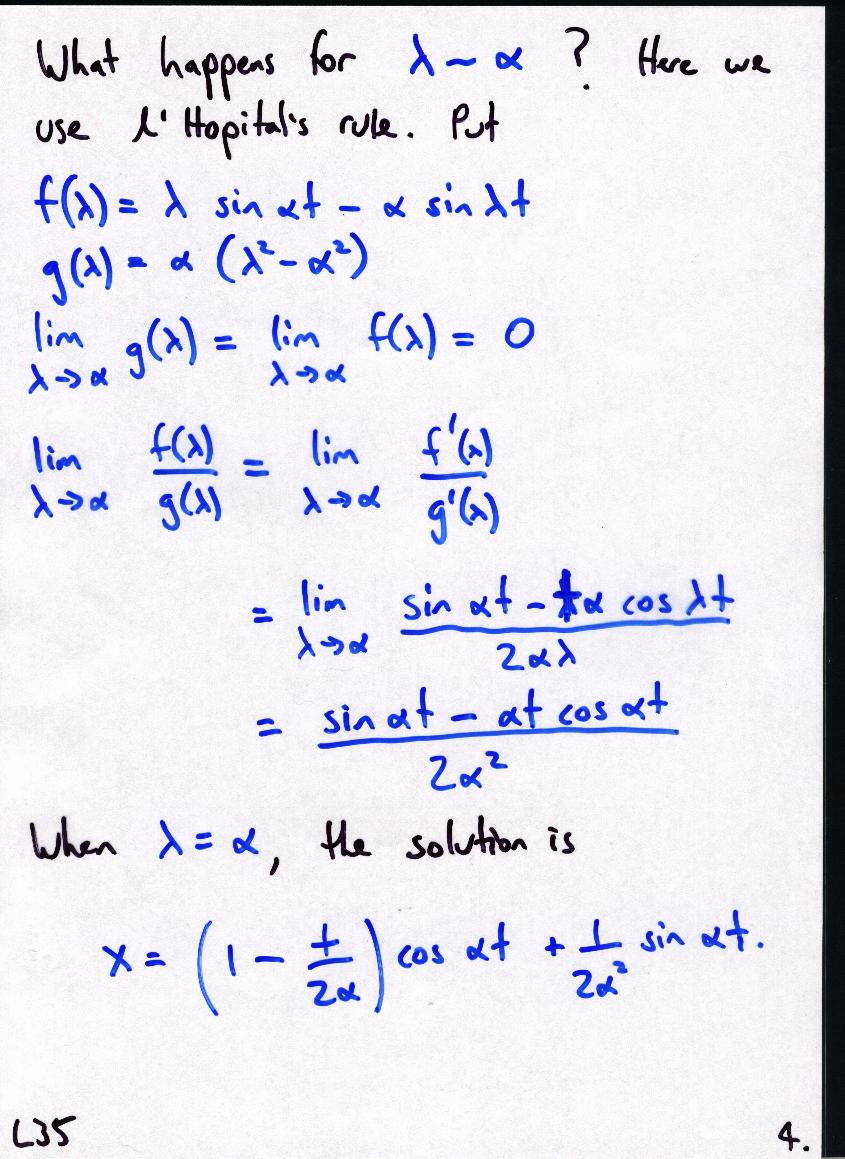 What happens for λ ~ α ? Here we
use l'Hopital's rule. Put
f(λ) = λ sin αt - α sin λt
g(λ) = α (λ² - α²)
lim g(λ) = lim f(λ) = 0
λ→α λ→α
lim f(λ)/g(λ) = lim f'(λ)/g'(λ)
λ→α λ→α
= lim (sin αt - tα cos λt)/(2αλ)
λ→α
= (sin αt - αt cos αt)/(2α²)
When λ = α, the solution is
x = (1 - t/(2α)) cos αt + 1/(2α²) sin αt.
L35 4.